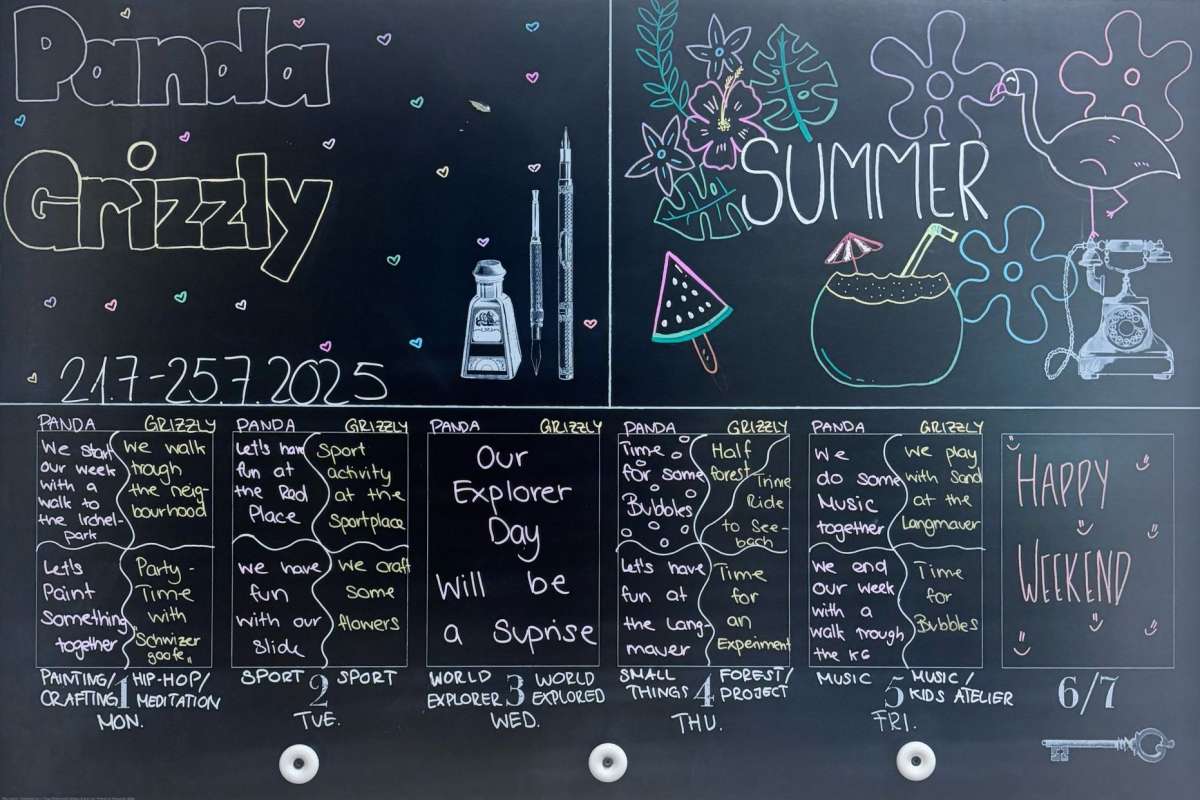 Panda
Grizzly
21.7-25.7.2025
SUMMER
PANDA
GRIZZLY
We start
our week
with a
walk to
the Irchel-
park
We walk
trough
the neig-
bourhood
Let's
Paint
Something
together
Party-
Time
with
"Schwizer
goofe"
PAINTING/
CRAFTING
1
HIP-HOP/
MEDITATION
MON.
PANDA
GRIZZLY
Let's have
fun at
the Red
Place
Sport
activity
at the
Sportplace
We have
fun
with our
Slide
We craft
some
flowers
SPORT
2
SPORT
TUE.
PANDA
GRIZZLY
Our
Explorer
Day
Will be
a Suprise
WORLD
EXPLORER
3
WORLD
EXPLORED
WED.
PANDA
GRIZZLY
Time
for some
Bubbles
Half
forest
Trine
Ride
to See-
bach
Let's have
fun at
the Lang-
mauer
Time
for
an
Experiment
SMALL
THINGS
4
FOREST/
PROJECT
THU.
PANDA
GRIZZLY
We
do some
Music
together
We play
with Sand
at the
Langmauer
We end
our week
with a
walk trough
the K6
Time
for
Bubbles
MUSIC
5
MUSIC/
KIDS ATELIER
FRI.
HAPPY
WEEKEND
6/7